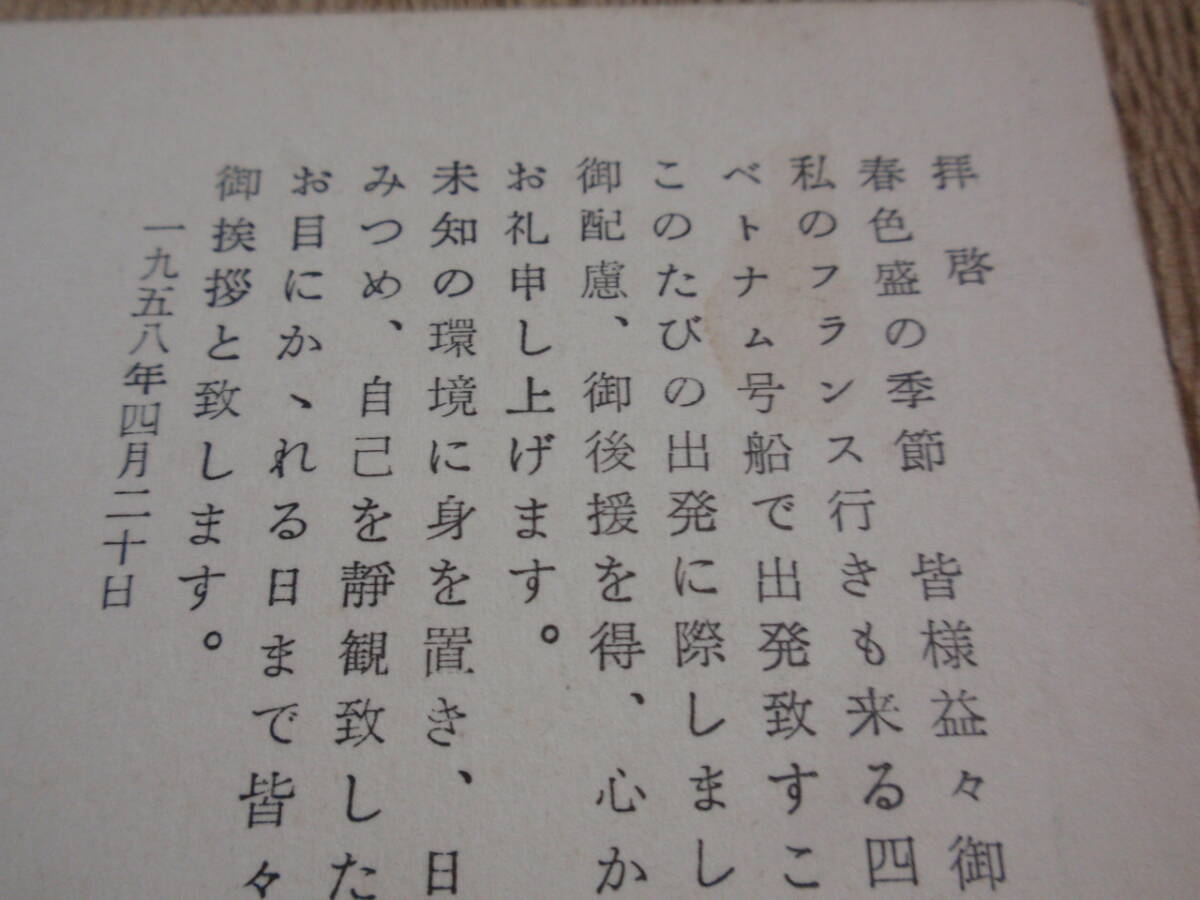 拝啓
春色盛の季節　皆様益々御
私のフランス行きも来る四
ベトナム号船で出発致すこ
このたびの出発に際しまし
御配慮、御後援を得、心か
お礼申し上げます。
未知の環境に身を置き、日
みつめ、自己を靜観致した
お目にかゝれる日まで皆々
御挨拶と致します。
一九五八年四月二十日